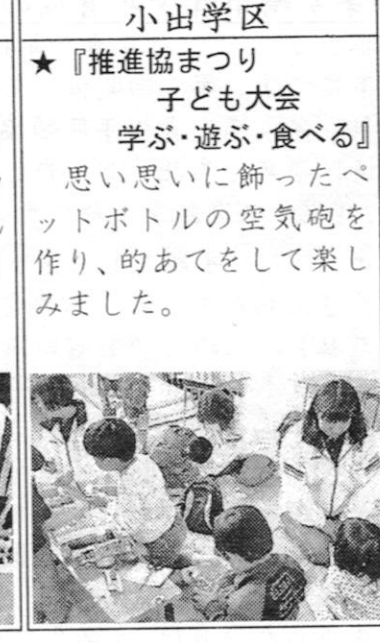 小出学区
★『推進協まつり
子ども大会
学ぶ・遊ぶ・食べる』
思い思いに飾ったペ
ットボトルの空気砲を
作り、的あてをして楽し
みました。